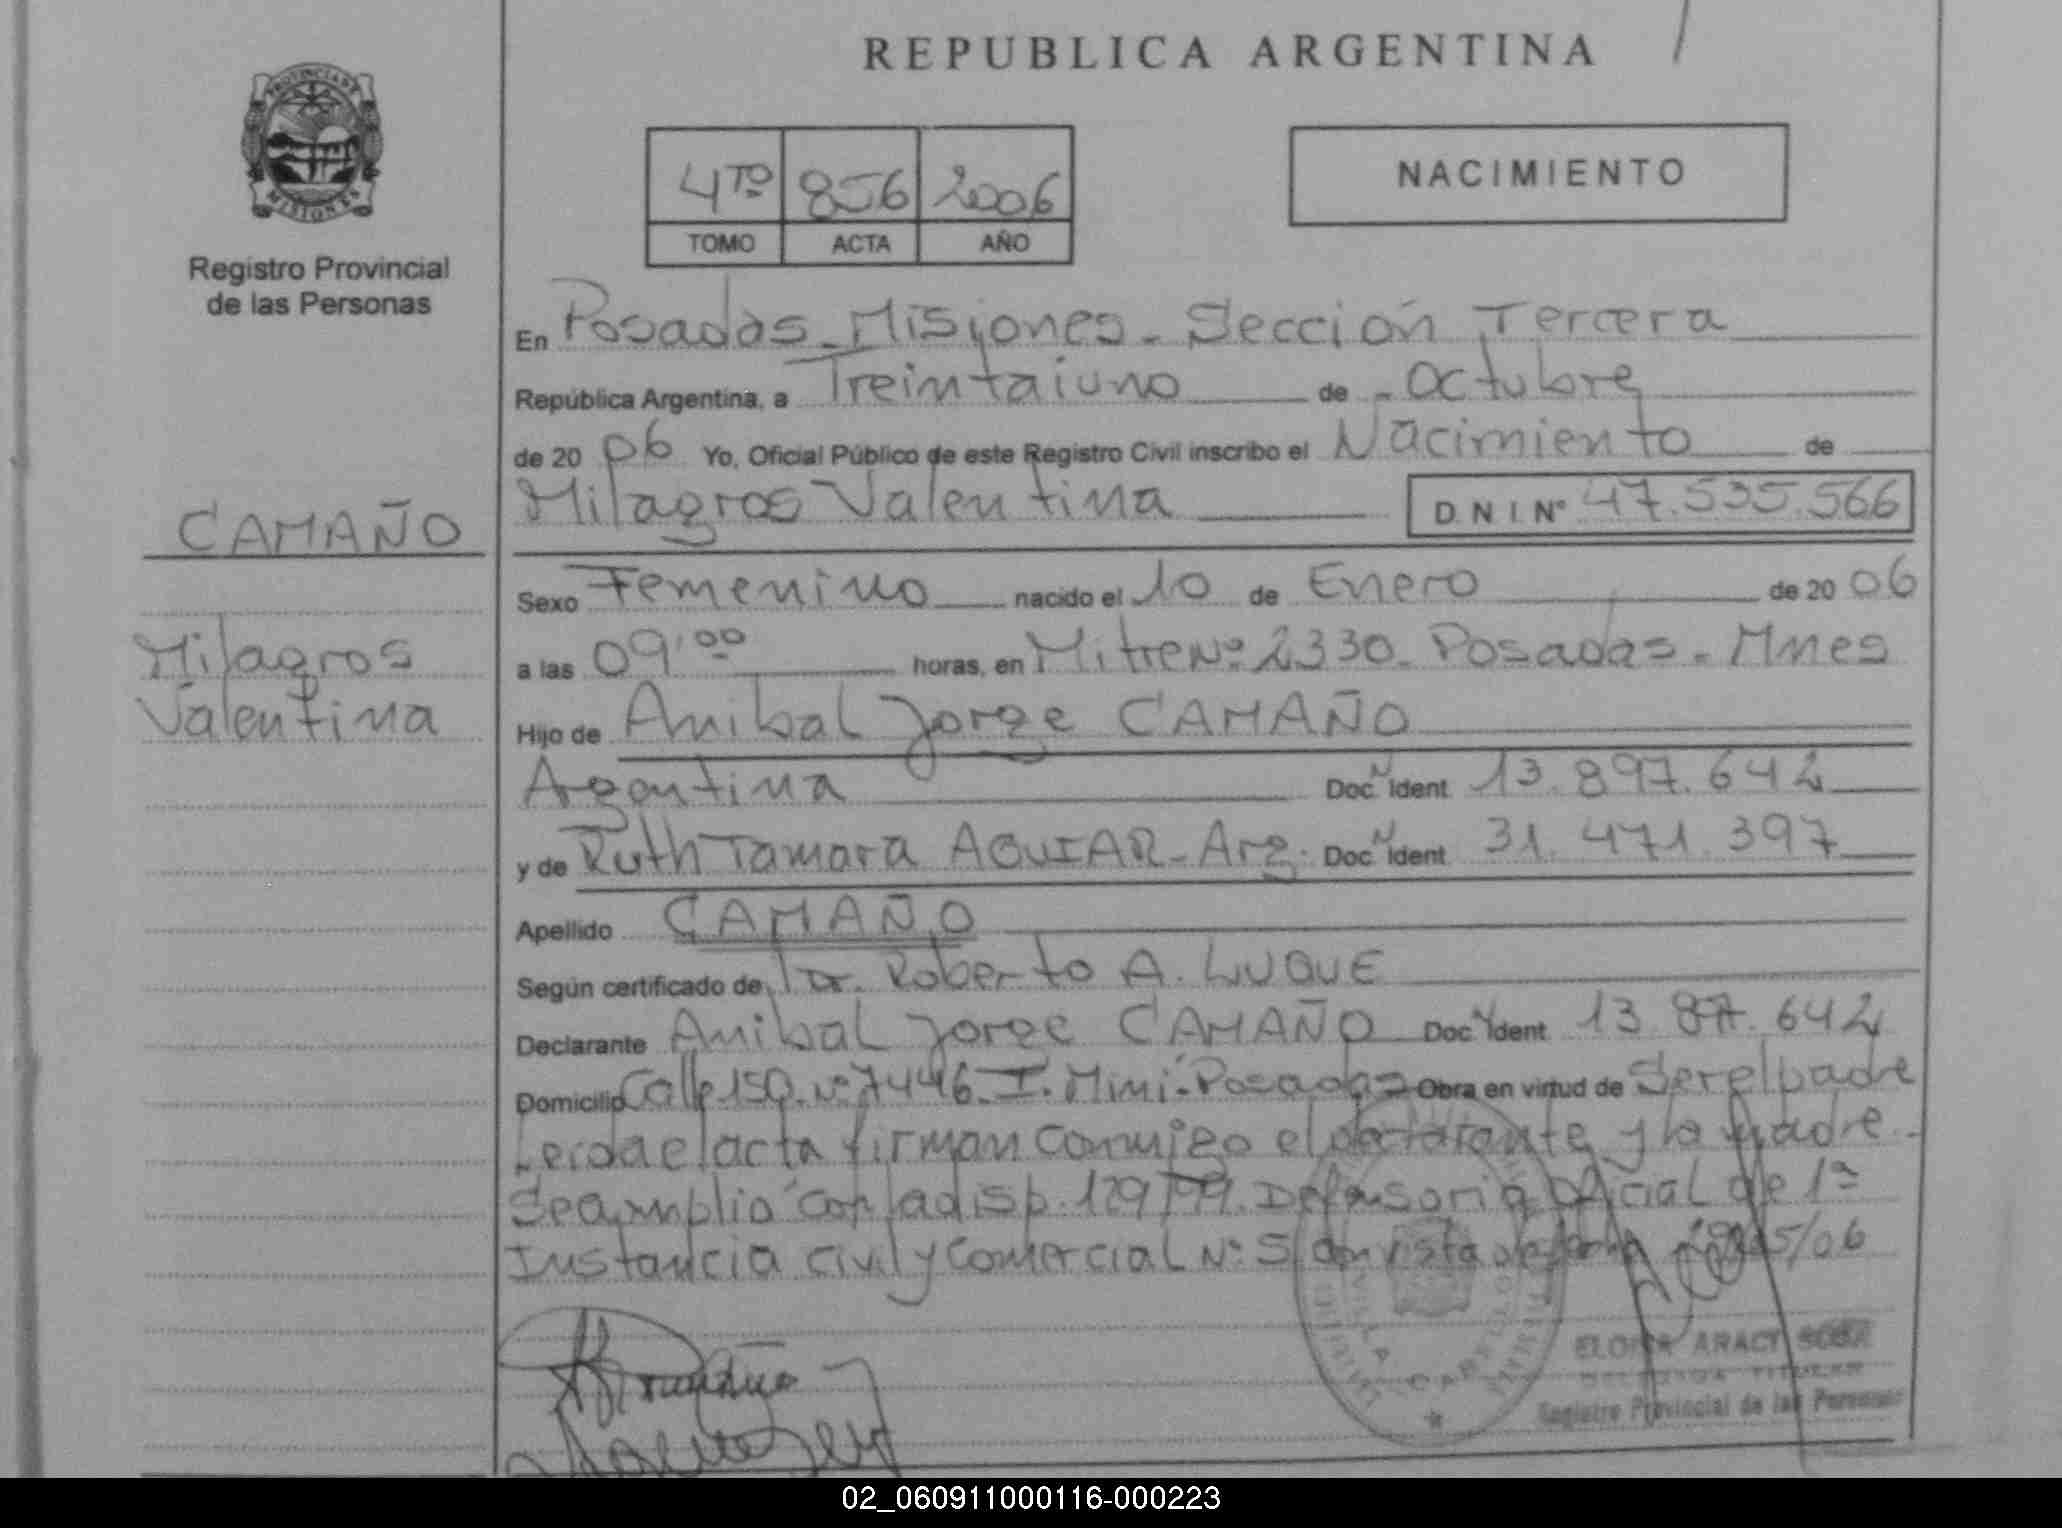 REPUBLICA ARGENTINA
PROVINCIA DE
MISIONES
Registro Provincial
de las Personas
4TO 856 2006
TOMO ACTA AÑO
NACIMIENTO
En Posadas - Misiones - Sección Tercera
República Argentina, a Treintaiuno de - Octubre
de 20 06 Yo, Oficial Público de este Registro Civil inscribo el Nacimiento de
CAMAÑO
Milagros Valentina D.N.I.Nº 47.535.566
Sexo Femenino nacido el 10 de Enero de 20 06
Milagros
Valentina
a las 09'00 horas, en Mitre Nº 2330 - Posadas - Mnes
Hijo de Anibal Jorge CAMAÑO
Argentina Doc. N Ident 13.897.642
y de Ruth Tamara AGUIAR - Arg. Doc. N Ident 31.471.397
Apellido CAMAÑO
Según certificado de Dr. Roberto A. LUQUE
Declarante Anibal Jorge CAMAÑO Doc. N Ident 13 642
Domicilio Calle 150 Nº 7446 - I. Miní - Posadas Obra en virtud de Ser el padre
Leida el acta firman conmigo el declarante y la Madre -
Se amplió con la disp. 129/99. Defensoria Oficial de 1ª
Instancia Civil y Comercial Nº 5 con vista de fecha 5/06
ARACY
Registro Provincial de las Personas
02_060911000116-000223